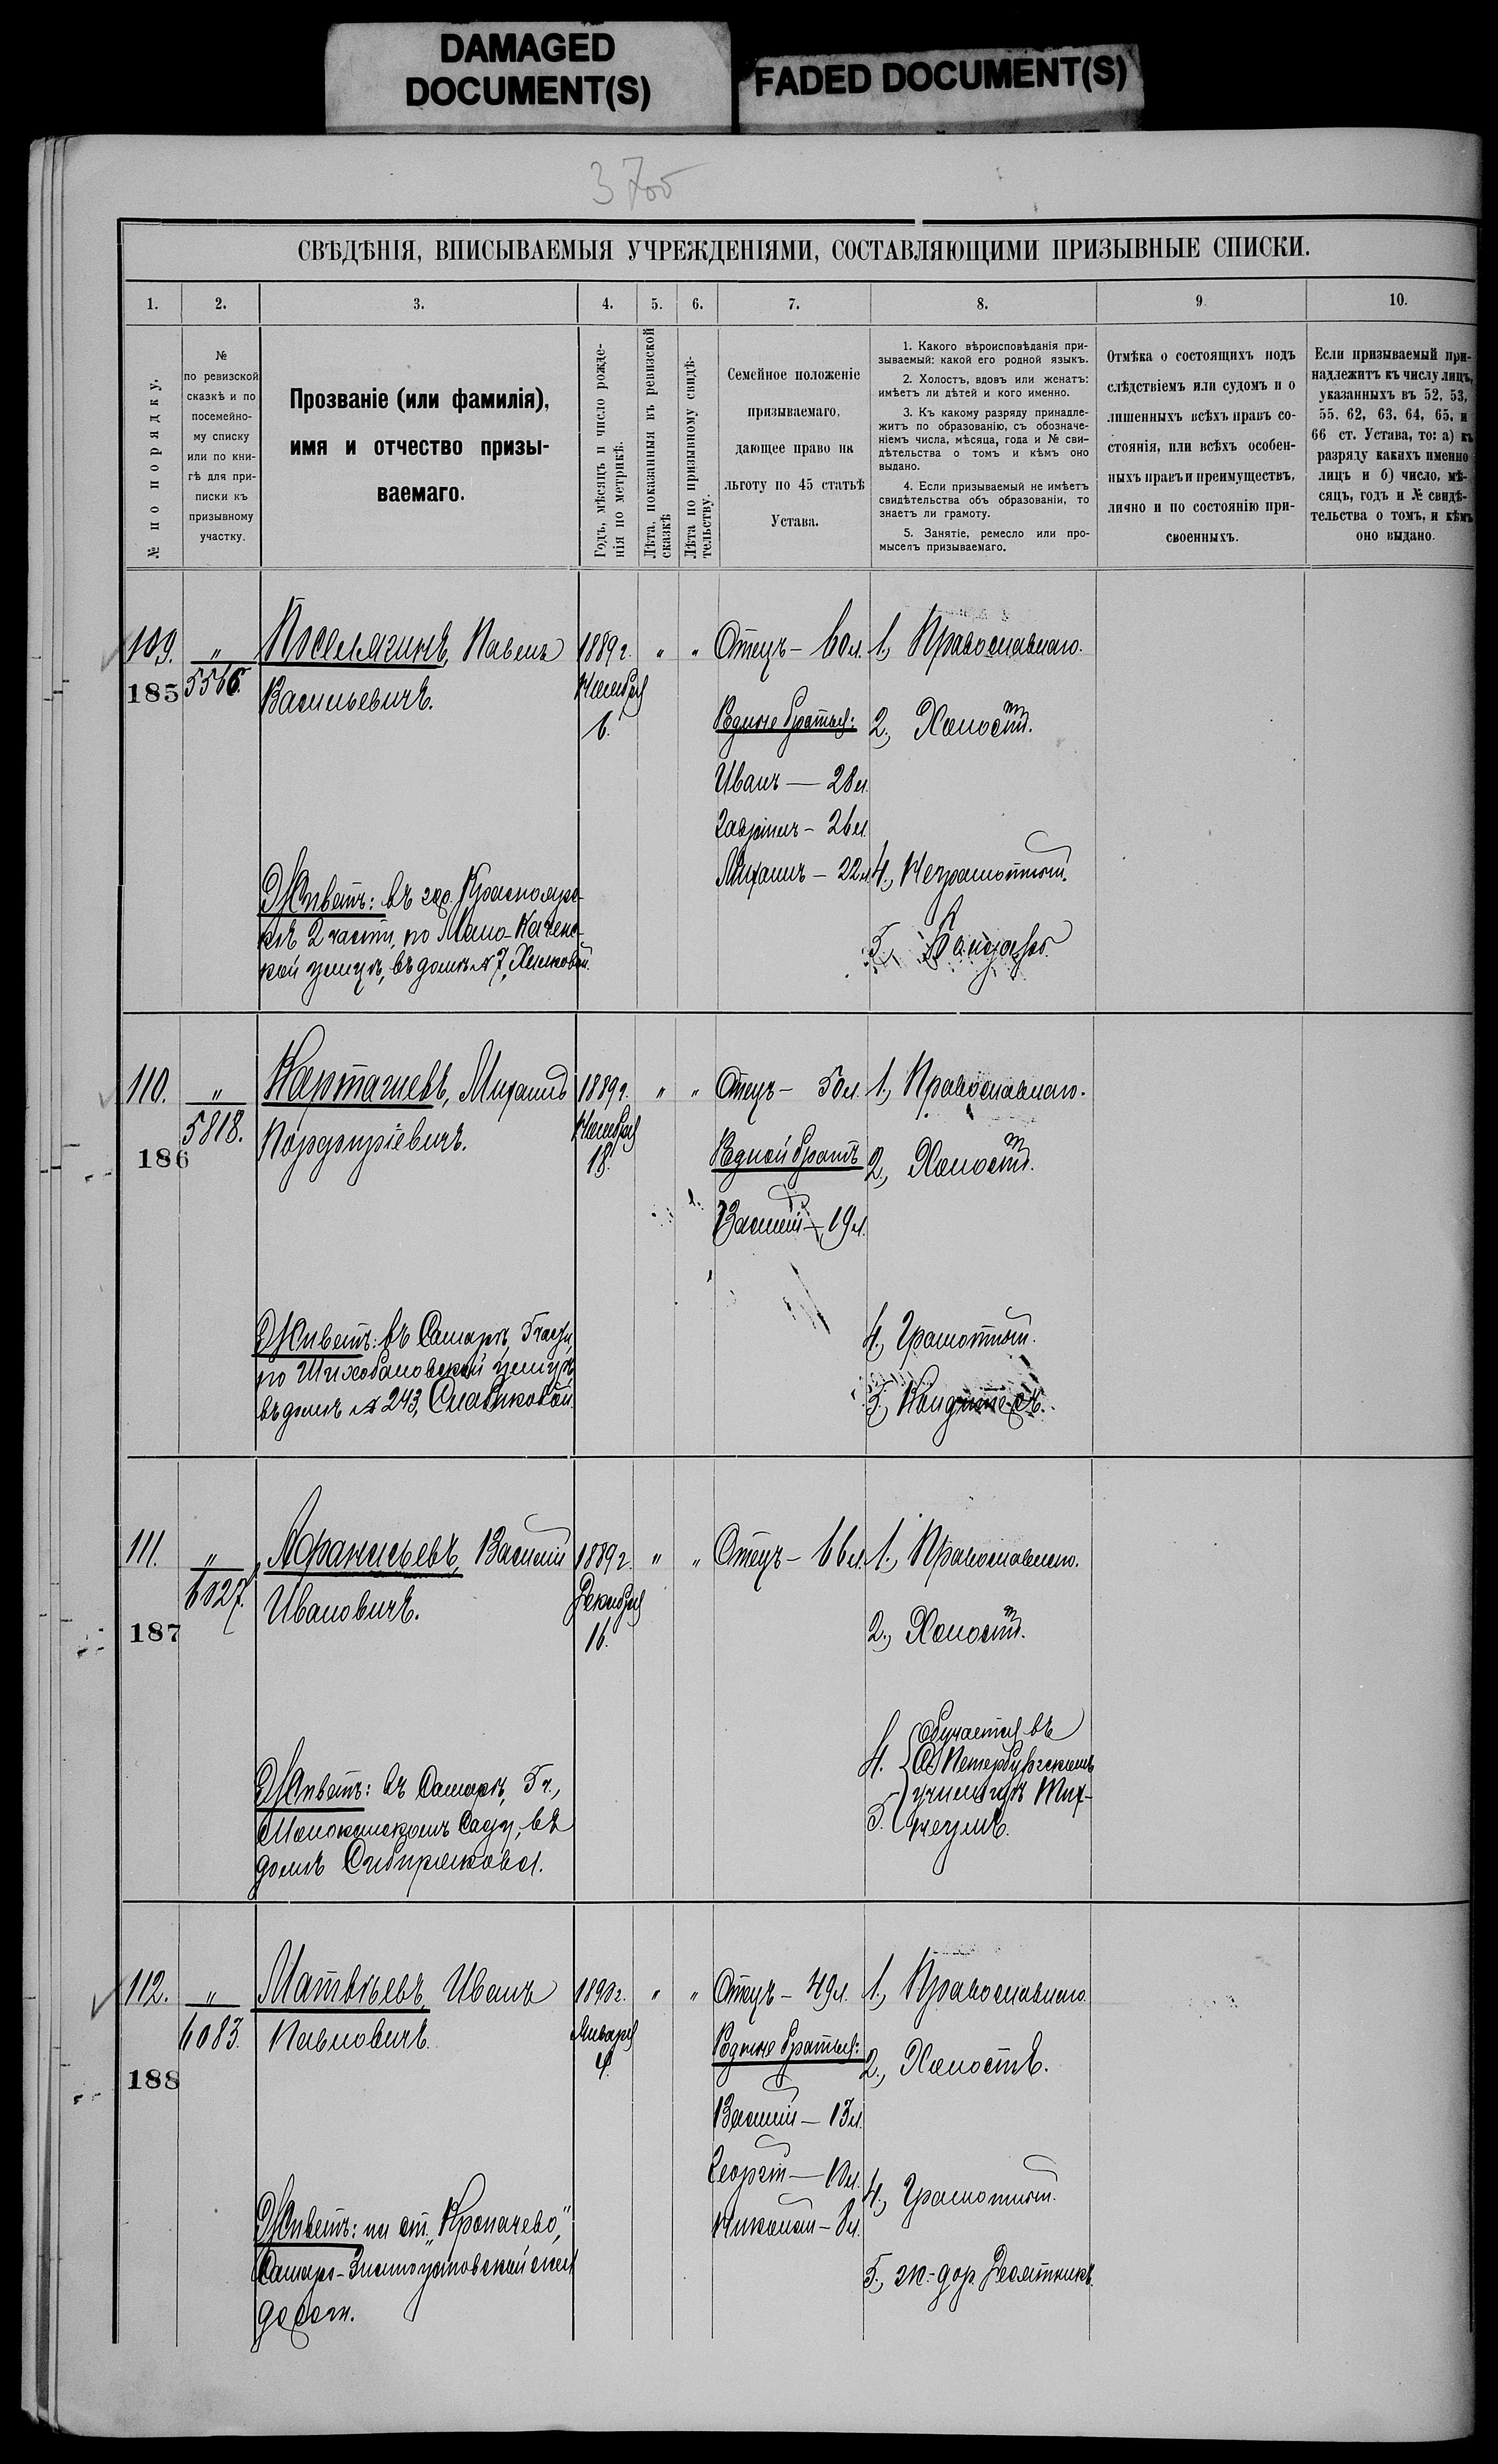 DAMAGED
DOCUMENT(S)
FADED DOCUMENT(S)
СВѢДѢНІЯ, ВПИСЫВАЕМЫЯ УЧРЕЖДЕНІЯМИ, СОСТАВЛЯЮЩИМИ ПРИЗЫВНЫЕ СПИСКИ.
1. 2. 3. 4. 5. 6. 7. 8. 9. 10.
№ по порядку.
№
по ревизской
сказкѣ и по
посемейно-
му списку
или по кни-
гѣ для при-
писки къ
призывному
участку.
Прозваніе (или фамилія),
имя и отчество призы-
ваемаго.
Годъ, мѣсяцъ и число рожде-
нія по метрикѣ.
Лѣта, показанныя въ ревизской
сказкѣ
Лѣта по призывному свидѣ-
тельству.
Семейное положеніе
призываемаго,
дающее право на
льготу по 45 статьѣ
Устава.
1. Какого вѣроисповѣданія при-
зываемый: какой его родной языкъ.
2. Холостъ, вдовъ или женатъ:
имѣетъ ли дѣтей и кого именно.
3. Къ какому разряду принадле-
житъ по образованію, съ обозначе-
ніемъ числа, мѣсяца, года и № сви-
дѣтельства о томъ и кѣмъ оно
выдано.
4. Если призываемый не имѣетъ
свидѣтельства объ образованіи, то
знаетъ ли грамоту.
5. Занятіе, ремесло или про-
мыселъ призываемаго.
Отмѣка о состоящихъ подъ
слѣдствіемъ или судомъ и о
лишенныхъ всѣхъ правъ со-
стоянія, или всѣхъ особен-
ныхъ правъ и преимуществъ,
лично и по состоянію при-
своенныхъ.
Если призываемый при-
надлежитъ къ числу лицъ,
указанныхъ въ 52, 53,
55, 62, 63, 64, 65, и
66 ст. Устава, то: а) къ
разряду какихъ именно
лицъ и б) число, мѣ-
сяцъ, годъ и № свидѣ-
тельства о томъ, и кѣмъ
оно выдано.
109.
185
"
5566.
Поселягинъ, Павелъ
Васильевичъ.
Живетъ: въ гор. Краснояр-
скѣ 2 части, по Мало-Качен-
кой улицѣ, въ домѣ № 7,
1889 г.
Ноября
6.
" "
Отецъ – 60 л.
Родные братья:
Иванъ — 28 л.
Гавріилъ – 26 л.
Михаилъ – 22 л.
1., Православнаго.
2., Холостъ.
4., Неграмотный.
5.,
110.
186
"
5818.
Карташевъ, Михаилъ
Порфиріевичъ.
Живетъ: въ Самарѣ, 5 части,
по Шихобаловской улицѣ
въ домѣ № 243, Славиковой.
1889 г.
Ноября
18.
" "
Отецъ – 50 л.
Родной братъ
Василій – 19 л.
1., Православнаго.
2., Холостъ.
4., Грамотный.
5., Кондитеръ.
111.
187
"
6027.
Афанасьевъ, Василій
Ивановичъ.
Живетъ: въ Самарѣ, 5 ч.,
Молоканскомъ Саду, въ
домѣ Сибирякова.
1889 г.
Декабря
16.
" "
Отецъ – 66 л.
1., Православнаго.
2., Холостъ.
4. Обучается въ
С Петербургскомъ
училищѣ
5.
112.
188
"
6083.
Матвѣевъ, Иванъ
Павловичъ.
Живетъ: на ст. „Кропачево",
Самаро-Златоустовской жел.
дороги.
1890 г.
Января
4.
" "
Отецъ – 49 л.
Родные братья:
Василій – 13 л.
Георгій – 10 л.
Николай – 8 л.
1., Православнаго.
2., Холостъ.
4., Грамотный.
5., ж.-дор. Десятникъ.